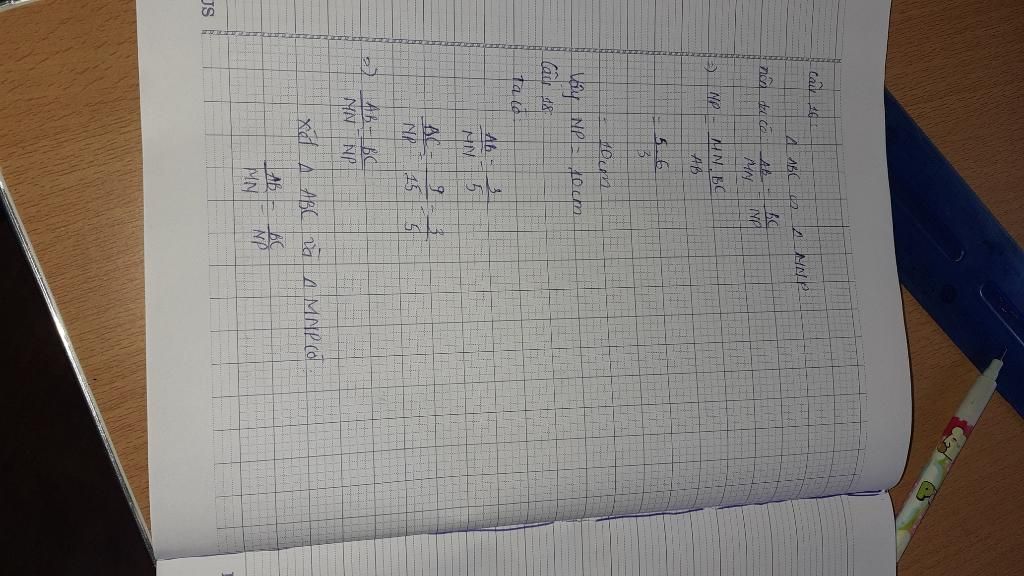 Câu 16:
Δ ABC ∽ Δ MNP
nên ta có AB/MN = BC/NP
=> NP = MN.BC/AB
= 5.6/3
= 10cm
Vậy NP = 10cm
Câu 18:
Ta có
AB/MN = 3/5
BC/NP = 9/15 = 3/5
=> AB/MN = BC/NP
Xét Δ ABC và Δ MNP có
AB/MN = BC/NP
US